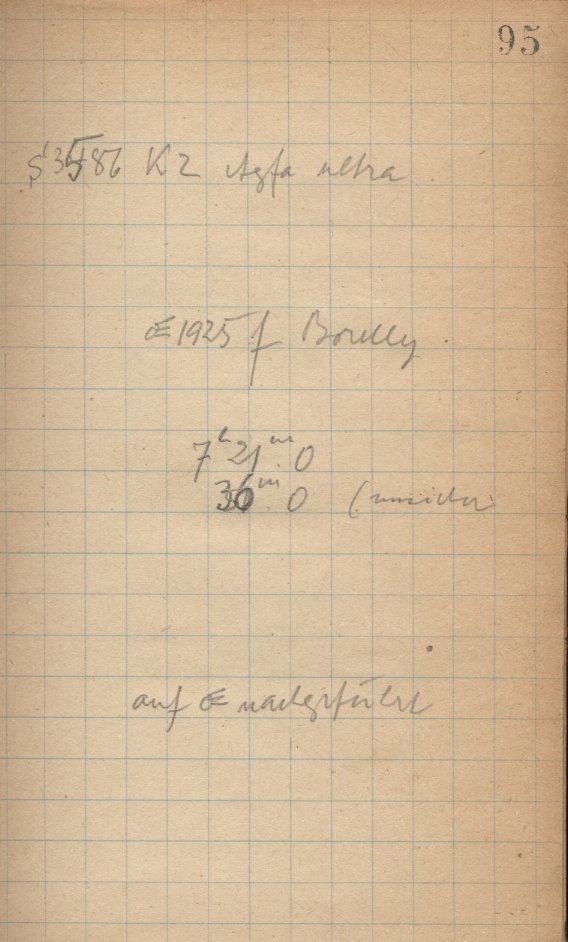 95
S 3586 K2 Agfa ultra
☄ 1925 f Borelly
7ʰ 21ᵐ.0
36ᵐ.0 (unsicher
auf ☄ nachgeführt